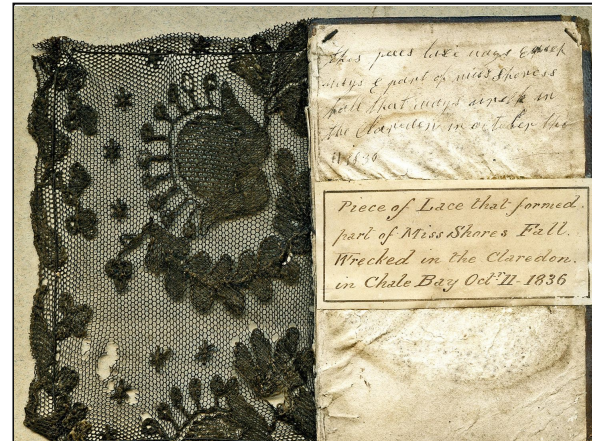 this ways
ways part of miss Shoreis
fall that ways in
the Claredon in october the
11 1836
Piece of Lace that formed.
part of Miss Shores Fall.
Wrecked in the Claredon.
in Chale Bay Octr 11 1836